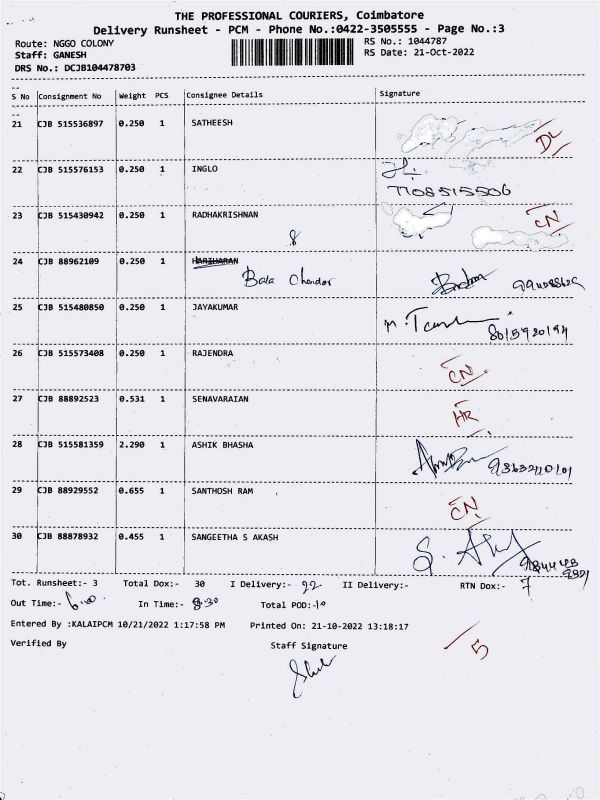 THE PROFESSIONAL COURIERS, Coimbatore
Delivery Runsheet - PCM - Phone No.:0422-3505555 - Page No.:3
Route: NGGO COLONY RS No.: 1044787
Staff: GANESH RS Date: 21-Oct-2022
DRS No.: DCJB104478703
S No Consignment No Weight PCS Consignee Details Signature
21 CJB 515536897 0.250 1 SATHEESH DL
22 CJB 515576153 0.250 1 INGLO
7708515506
23 CJB 515430942 0.250 1 RADHAKRISHNAN CN
24 CJB 88962109 0.250 1 HARIHARAN
Bala Chandar
25 CJB 515480850 0.250 1 JAYAKUMAR
8015920194
26 CJB 515573408 0.250 1 RAJENDRA CN
27 CJB 88892523 0.531 1 SENAVARAIAN HR
28 CJB 515581359 2.290 1 ASHIK BHASHA
29 CJB 88929552 0.655 1 SANTHOSH RAM CN
30 CJB 88878932 0.455 1 SANGEETHA S AKASH
Tot. Runsheet:- 3 Total Dox:- 30 I Delivery:- 22 II Delivery:- RTN Dox:- 7
Out Time:- In Time:- 8.30 Total POD:- 10
Entered By :KALAIPCM 10/21/2022 1:17:58 PM Printed On: 21-10-2022 13:18:17
Verified By Staff Signature 5